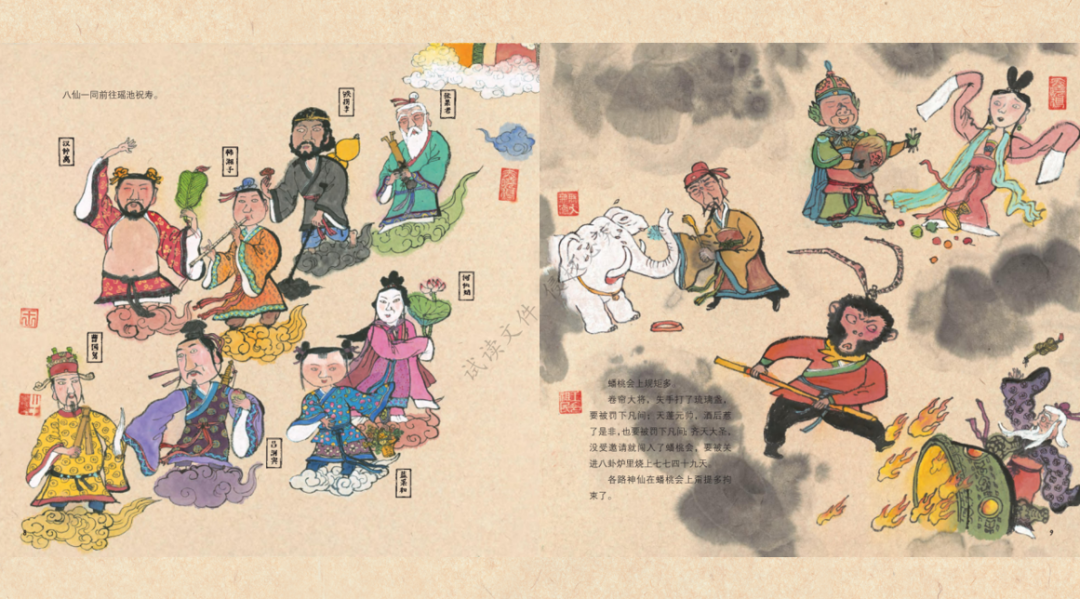 八仙一同前往瑶池祝寿。
汉钟离
韩湘子
铁拐李
张果老
曹国舅
吕洞宾
何仙姑
蓝采和
试读文件
蟠桃会上规矩多。
卷帘大将，失手打了琉璃盏，
要被罚下凡间；天蓬元帅，酒后惹
了是非，也要被罚下凡间；齐天大圣，
没受邀请就闯入了蟠桃会，要被关
进八卦炉里烧上七七四十九天。
各路神仙在蟠桃会上来很多拘
束了。
9